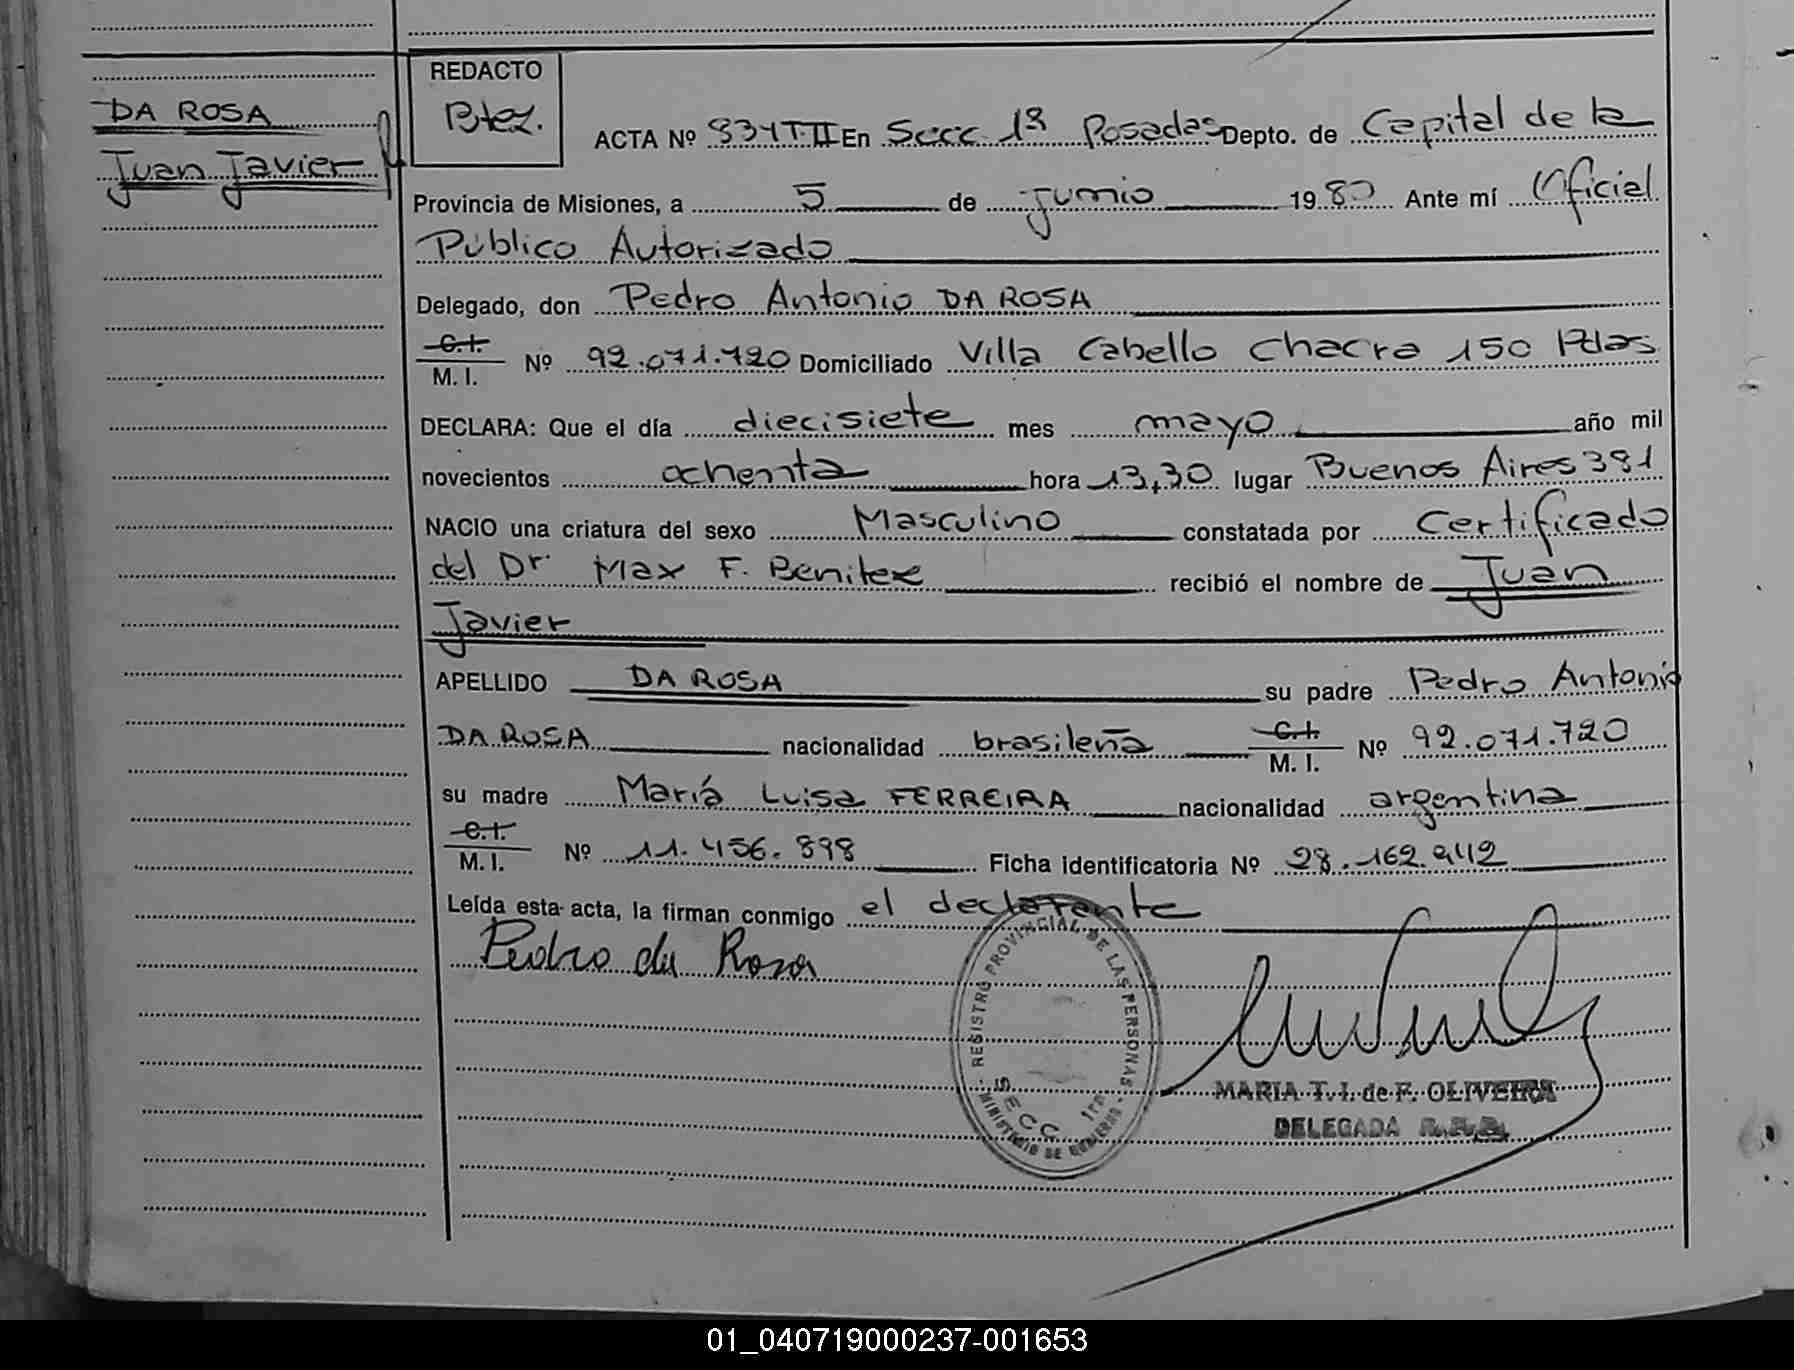 REDACTO
DA ROSA
Juan Javier
Btez.
ACTA Nº 834 T.II En Secc. 1ª Posadas Depto. de Capital de la
Provincia de Misiones, a 5 de junio 1980 Ante mí Oficial
Público Autorizado
Delegado, don Pedro Antonio DA ROSA
C.I.
M. I. Nº 92.071.720 Domiciliado Villa Cabello Chacra 150 Pdas
DECLARA: Que el día diecisiete mes mayo año mil
novecientos ochenta hora 13,30 lugar Buenos Aires 381
NACIO una criatura del sexo Masculino constatada por Certificado
del Dr Max F. Benitez recibió el nombre de Juan
Javier
APELLIDO DA ROSA su padre Pedro Antonio
DA ROSA nacionalidad brasileña C.I. M. I. Nº 92.071.720
su madre María Luisa FERREIRA nacionalidad argentina
C.I.
M. I. Nº 11.456.898 Ficha identificatoria Nº 28.162.942
Leída esta acta, la firman conmigo el declarante
Pedro da Rosa
REGISTRO PROVINCIAL DE LAS PERSONAS
SECC 1ra
MINISTERIO DE GOBIERNO
MARIA T. I. de F. OLIVEIRA
DELEGADA
01_040719000237-001653